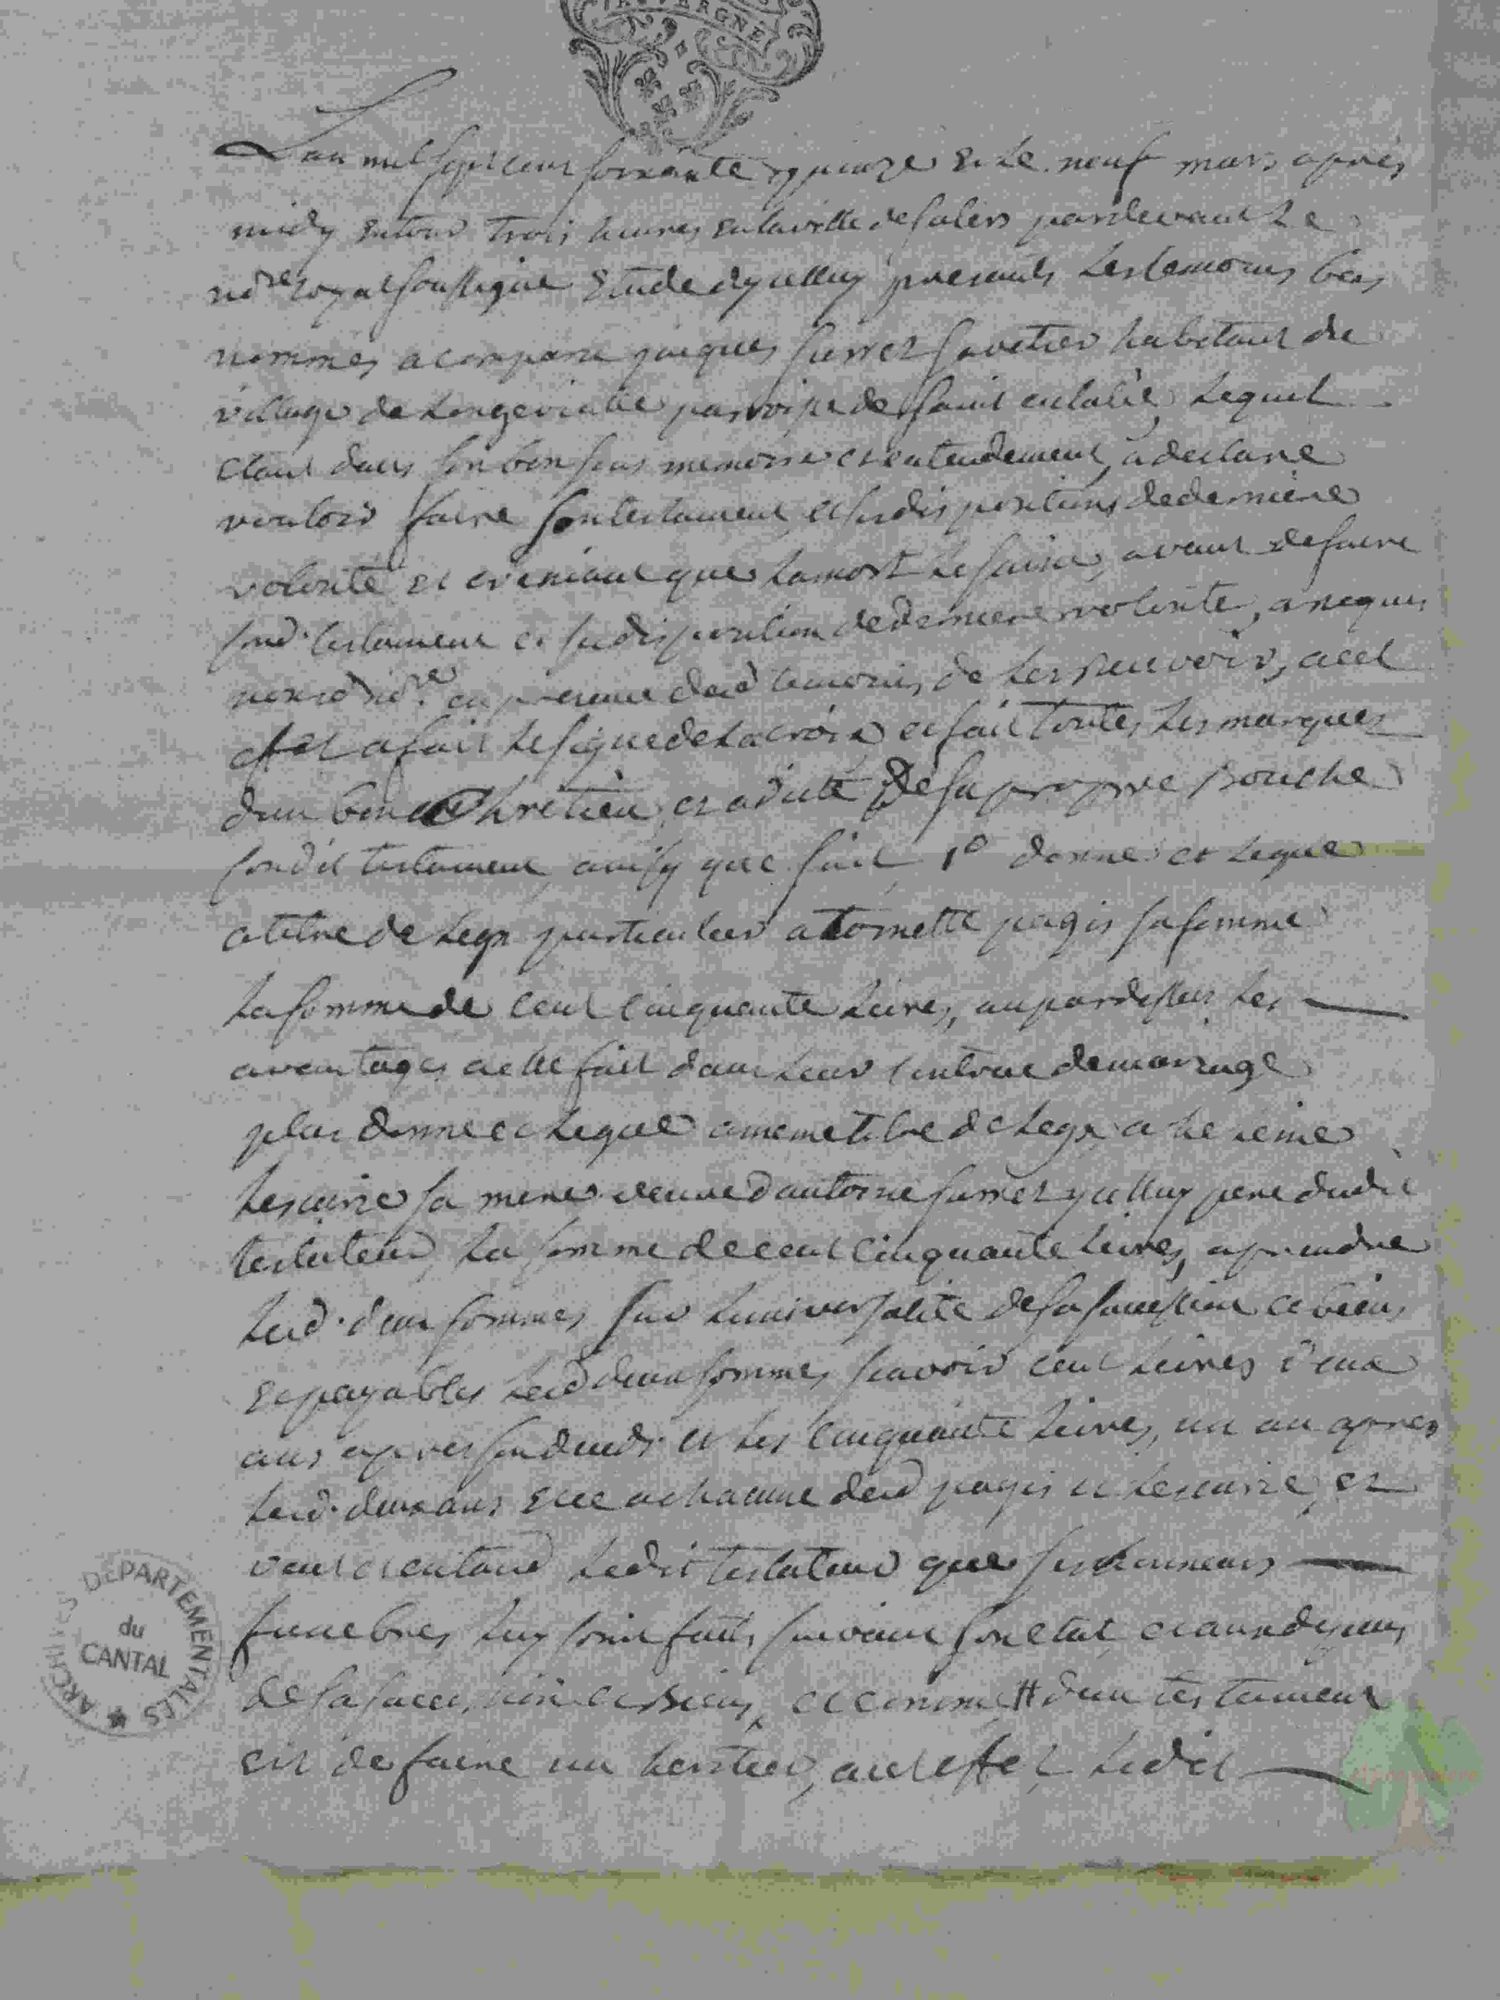 AUVERGNE
Lan mil sept cent soixante quinze & le neuf mars apres
midy entour trois heures en la ville de salers pardevant le
nore royal soussigné etude dyceluy presents les temoins bas
nommes a comparu jacques savetier habitant du
village de paroisse de saint eulalie, lequel
etant dans son bon sens memoire et entendement, a declaré
vouloir faire son testament et sa disposition de derniere
volonté et que la mort avant de faire
sond. testament et sa disposition de derniere volonté, a requis
nousd nore en presence desd temoins de les recevoir, a cet
effet a fait le signe de la croix et fait toutes les marques
dun bon Chretien et a dicté De sa propre Bouche
sondit testament, ainsy que suit, 1º donne et legue
a titre de legs particulier a tomette pagis sa femme
la somme de cent cinquante livres, aupardessus les
avantages a elle fait dans leur contrat de mariage
plus donne et legue a meme titre de legs a
sa mere veuve dantoine yceluy pere dudit
testateur, la somme de cent cinquante livres, a prendre
lesd. deux sommes sur luniversalité de sa succession et biens
et payables lesd deux sommes scavoir cent livres deux
ans apres son deces et les cinquante livres, un an apres
lesd. deux ans et ce a chacune desd pagis et et
veut et entand ledit testateur que ses honneurs
funebres luy soint faits suivant son etat et aux depens
de sa succession et Biens, et comme # dun testament
est de faire un heritier, a cet effet, ledit
ARCHIVES DÉPARTEMENTALES
du
CANTAL